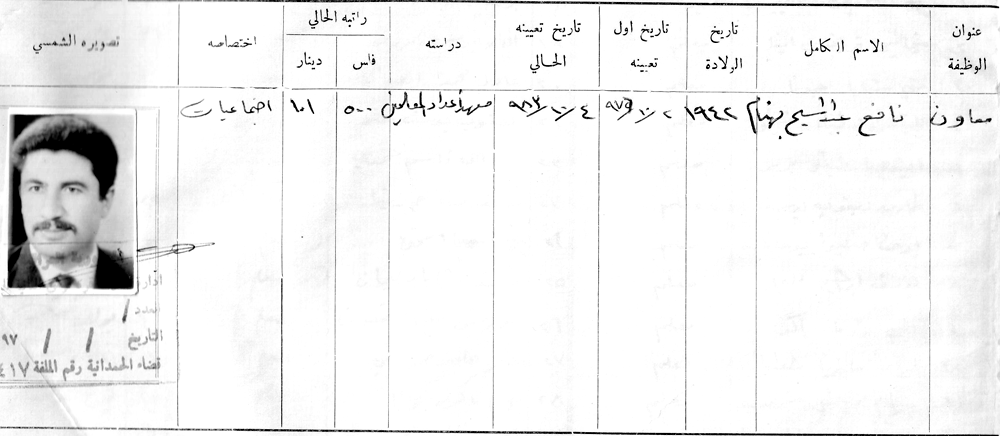 عنوان الوظيفة
الاسم الكامل
تاريخ الولادة
تاريخ اول تعيينه
تاريخ تعيينه الحالي
دراسته
راتبه الحالي
فلس
دينار
اختصاصه
تصويره الشمسي
معاون
نافع عبدالمسيح بهنام
١٩٤٢
معهد اعداد المعلمين
٥٠٠
١٠١
اجتماعيات
العدد /
التاريخ / / ٩٧
قضاء الحمدانية رقم الملفة ٤١٧